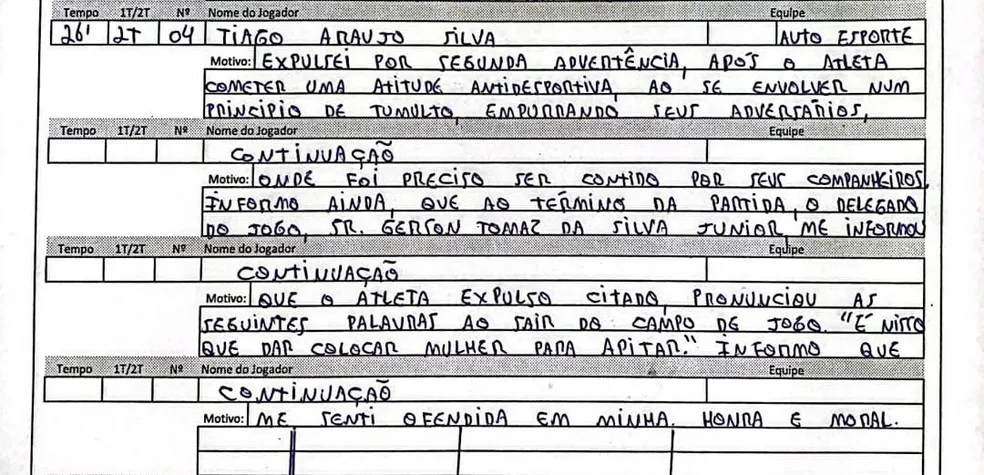 Tempo 1T/2T Nº Nome do Jogador Equipe
26' 2T 04 TIAGO ARAUJO SILVA AUTO ESPORTE
Motivo: EXPULSEI POR SEGUNDA ADVERTÊNCIA, APÓS O ATLETA
COMETER UMA ATITUDE ANTIDESPORTIVA, AO SE ENVOLVER NUM
PRINCÍPIO DE TUMULTO, EMPURRANDO SEUS ADVERSÁRIOS,
Tempo 1T/2T Nº Nome do Jogador Equipe
CONTINUAÇÃO
Motivo: ONDE FOI PRECISO SER CONTIDO POR SEUS COMPANHEIROS.
INFORMO AINDA, QUE AO TÉRMINO DA PARTIDA, O DELEGADO
DO JOGO, SR. GERSON TOMAZ DA SILVA JUNIOR, ME INFORMOU
Tempo 1T/2T Nº Nome do Jogador Equipe
CONTINUAÇÃO
Motivo: QUE O ATLETA EXPULSO CITADO, PRONUNCIOU AS
SEGUINTES PALAVRAS AO SAIR DO CAMPO DE JOGO. "É NISTO
QUE DAR COLOCAR MULHER PARA APITAR." INFORMO QUE
Tempo 1T/2T Nº Nome do Jogador Equipe
CONTINUAÇÃO
Motivo: ME SENTI OFENDIDA EM MINHA HONRA E MORAL.